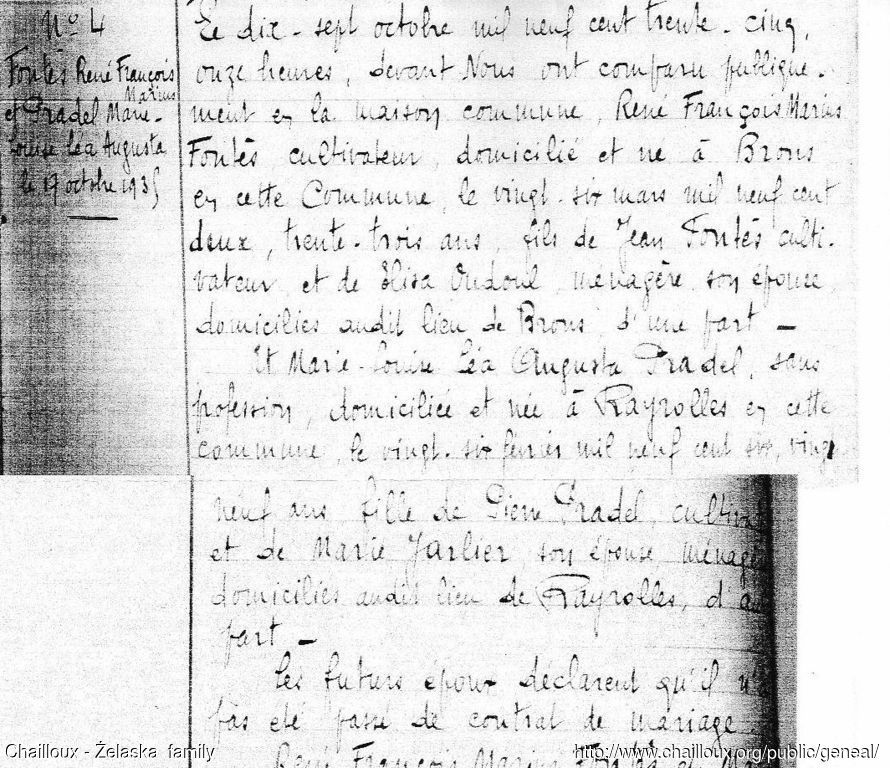 N° 4
Fontès René François
Marius
et Pradel Marie-
Louise Léa Augusta
le 17 octobre 1935
Le dix-sept octobre mil neuf cent trente-cinq,
onze heures, devant Nous ont comparu publique-
ment en la maison commune, René François Marius
Fontès, cultivateur, domicilié et né à Brons
en cette Commune, le vingt-six mars mil neuf cent
deux, trente-trois ans, fils de Jean Fontès culti-
vateur, et de Elisa Oudoul, ménagère, son épouse,
domiciliés audit lieu de Brons, d'une part —
Et Marie-Louise Léa Augusta Pradel, sans
profession, domiciliée et née à Rayrolles en cette
commune, le vingt-six février mil neuf cent six, vingt
neuf ans, fille de Pierre Pradel, cultiva
et de Marie Jarlier, son épouse, ménag
domiciliés audit lieu de Rayrolles, d'au
part —
Les futurs époux déclarent qu'il n'a
pas été passé de contrat de mariage
René François Marius Fontès et
Chailloux - Żelaska family
http://www.chailloux.org/public/geneal/